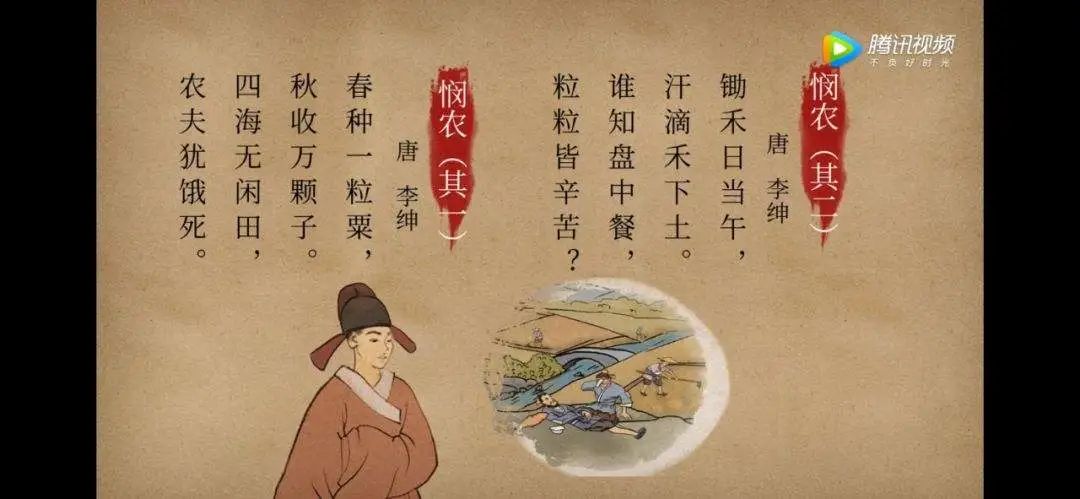 腾讯视频
不负好时光
悯农（其二）
唐 李绅
锄禾日当午，
汗滴禾下土。
谁知盘中餐，
粒粒皆辛苦？
悯农（其一）
唐 李绅
春种一粒粟，
秋收万颗子。
四海无闲田，
农夫犹饿死。